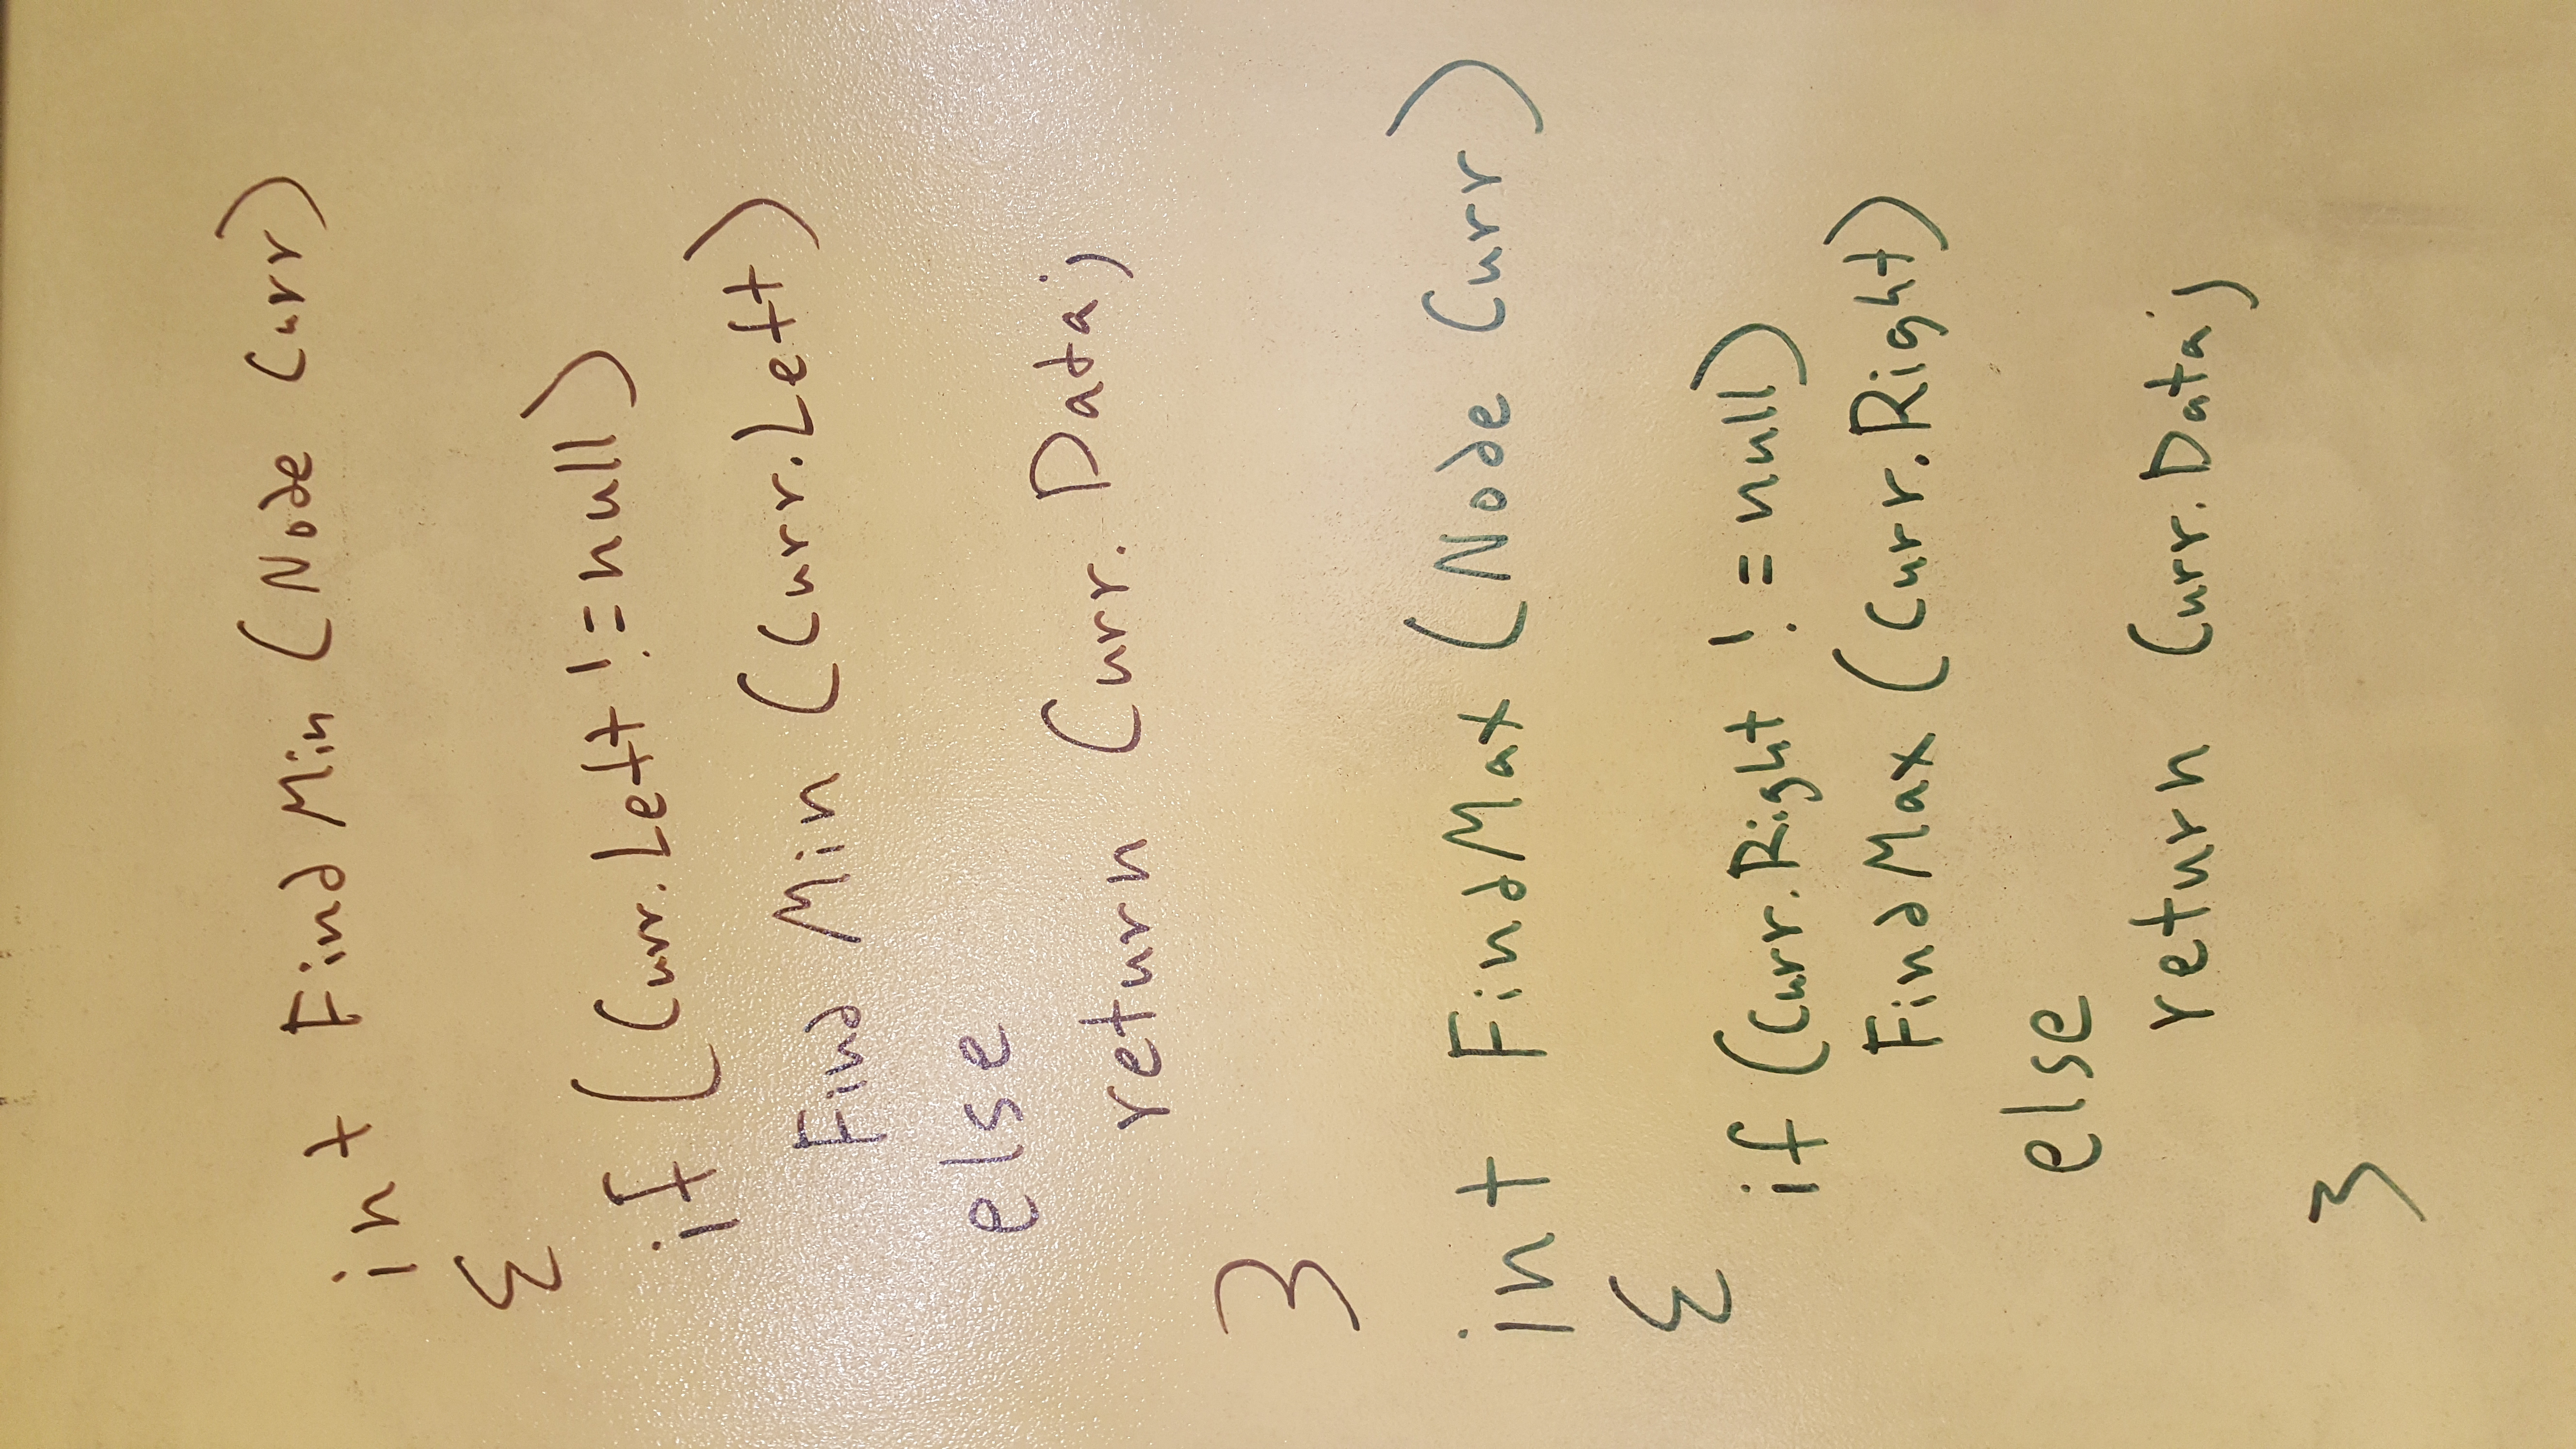 int FindMin (Node Curr)
{
if (Curr.Left != null)
Find Min (Curr.Left)
else
return Curr. Data;
}
int FindMax (Node Curr)
{
if (Curr.Right != null)
FindMax (Curr.Right)
else
return Curr.Data;
}